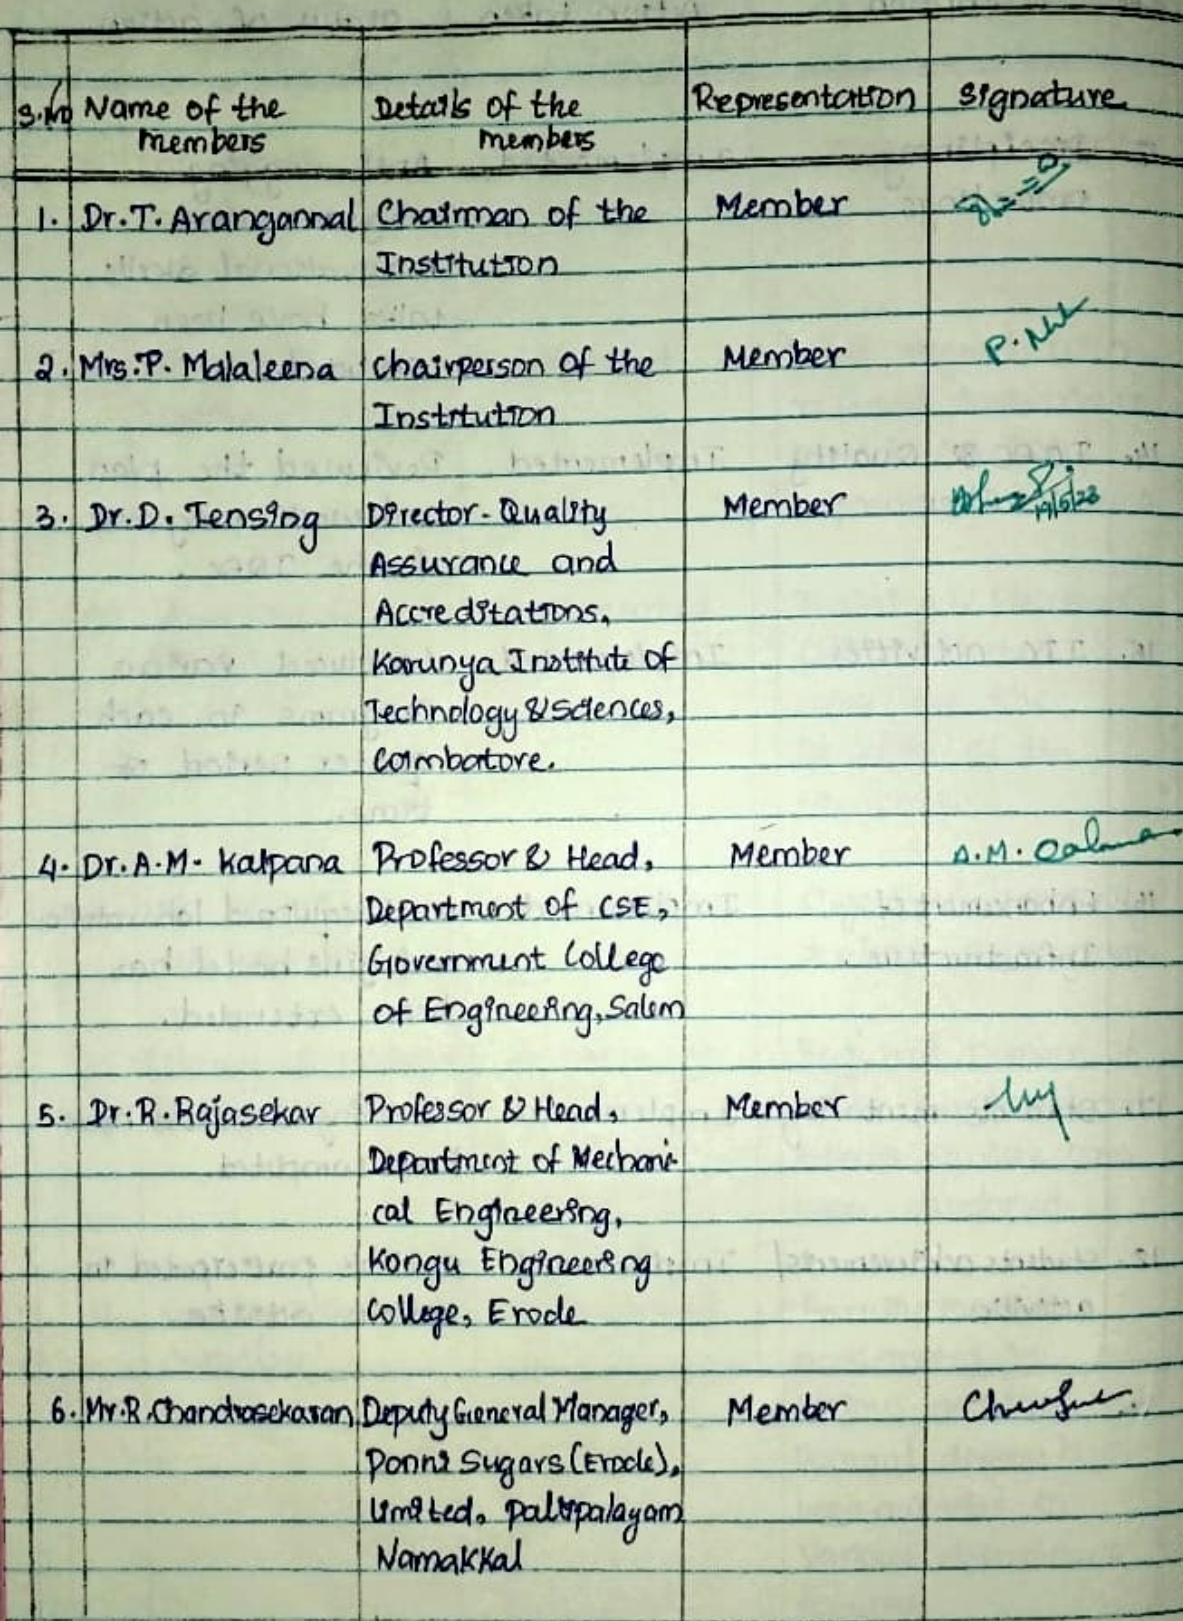 S.No Name of the members Details of the members Representation Signature
1. Dr.T. Arangannal Chairman of the Member
Institution
2. Mrs.P. Malaleena Chairperson of the Member
Institution
P.
3. Dr.D. Tensing Director-Quality Member
19/5/23
Assurance and
Accreditations,
Karunya Institute of
Technology & Sciences,
Coimbatore.
4. Dr.A.M. Kalpana Professor & Head, Member A.M.
Department of CSE,
Government College
of Engineering, Salem
5. Dr.R.Rajasekar Professor & Head, Member
Department of Mechani
cal Engineering,
Kongu Engineering
College, Erode
6. Mr.R.Chandrasekaran Deputy General Manager, Member
Ponni Sugars (Erode),
Limited, pallipalayam
Namakkal